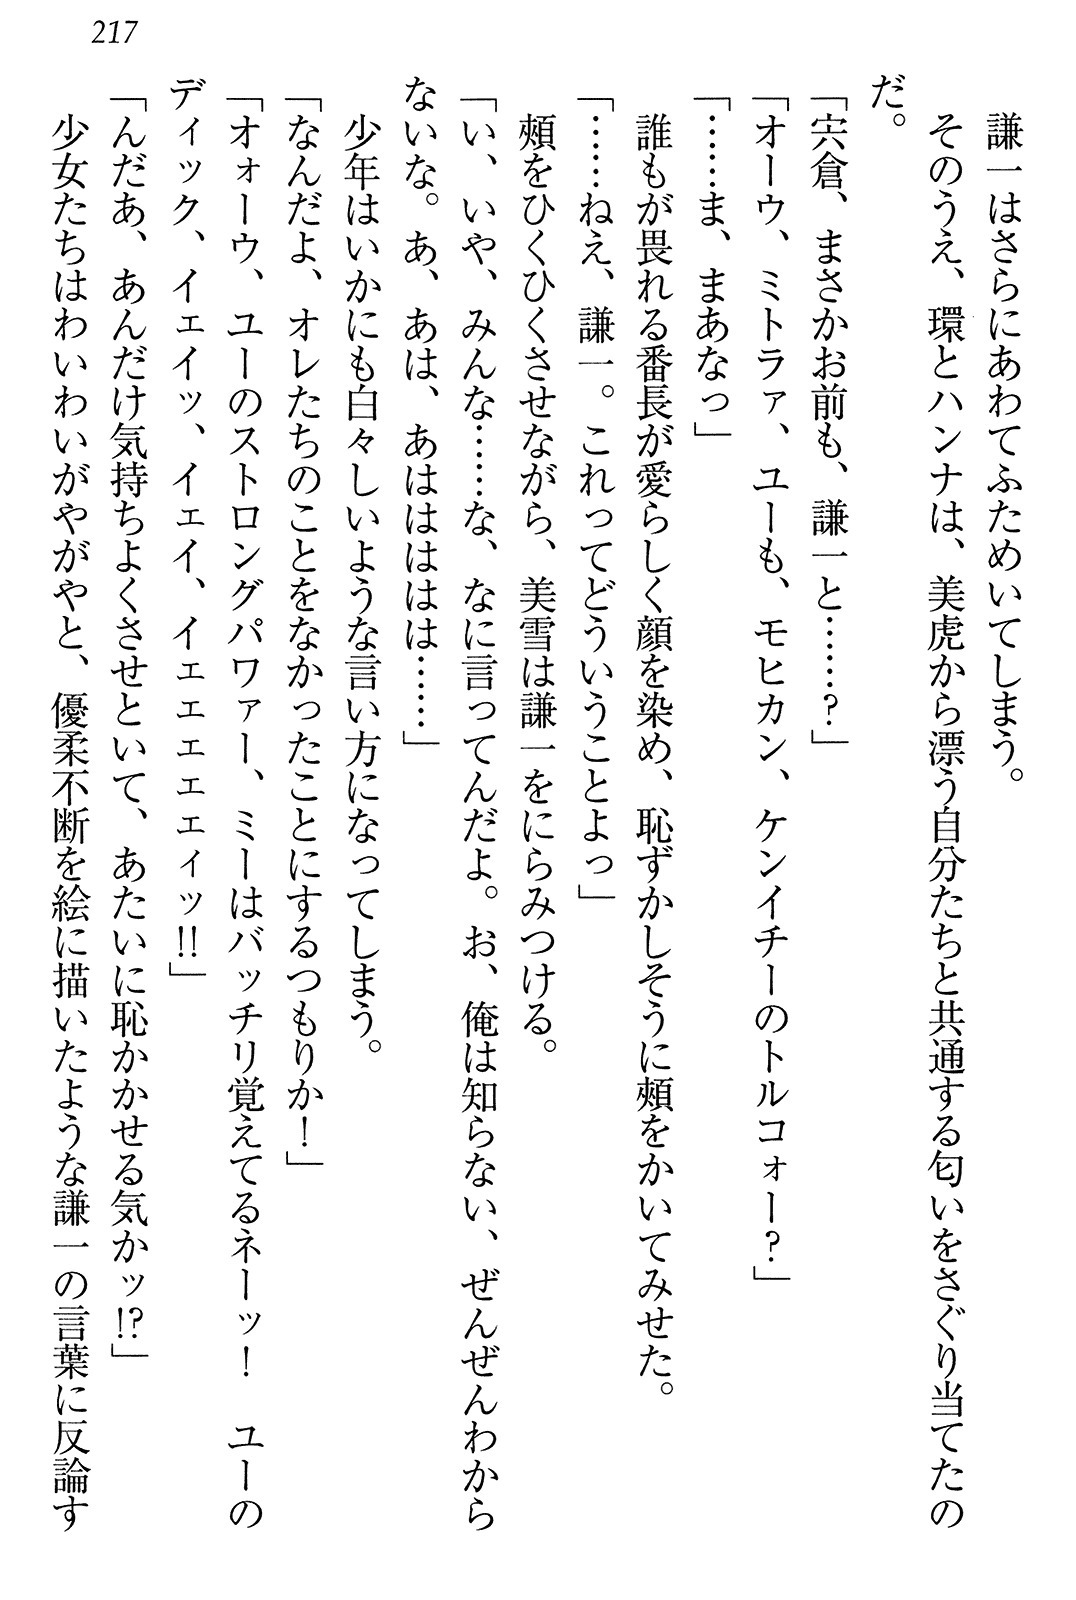 217
謙一はさらにあわてふためいてしまう。
そのうえ、環とハンナは、美虎から漂う自分たちと共通する匂いをさぐり当てたの
だ。
「宍倉、まさかお前も、謙一と……？」
「オーウ、ミトラァ、ユーも、モヒカン、ケンイチーのトルコォー？」
「……ま、まあなっ」
誰もが畏れる番長が愛らしく顔を染め、恥ずかしそうに頰をかいてみせた。
「……ねえ、謙一。これってどういうことよっ」
頰をひくひくさせながら、美雪は謙一をにらみつける。
「い、いや、みんな……な、なに言ってんだよ。お、俺は知らない、ぜんぜんわから
ないな。あ、あは、あはははははは……」
少年はいかにも白々しいような言い方になってしまう。
「なんだよ、オレたちのことをなかったことにするつもりか！」
「オォーウ、ユーのストロングパワァー、ミーはバッチリ覚えてるネーッ！　ユーの
ディック、イェイッ、イェイ、イェェェェェィッ!!」
「んだあ、あんだけ気持ちよくさせといて、あたいに恥かかせる気かッ!?」
少女たちはわいわいがやがやと、優柔不断を絵に描いたような謙一の言葉に反論す